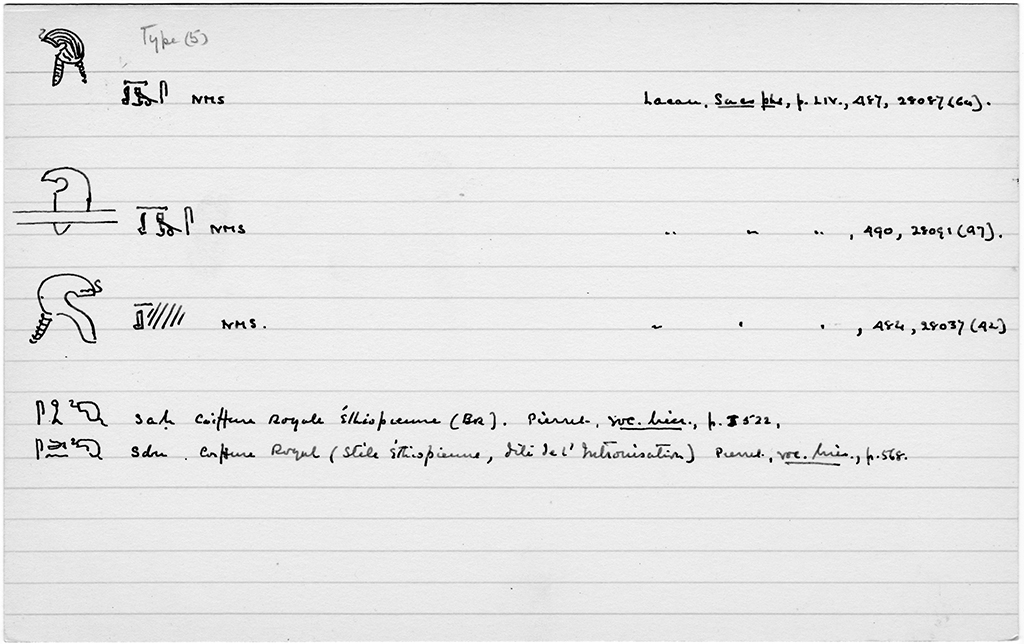 Type (5)
NMS Lacau, Sarcophs, p. LIV., 487, 28087 (64).
NMS " " " , 490, 28091 (97).
NMS. " " " , 484, 28037 (42)
Coiffure Royale Éthiopienne (BR). Pierret, voc. hier., p. 522,
Sdn. Coiffure Royal (Stèle Éthiopienne, dite de l'Intronisation) Pierret, voc. hier., p. 568.